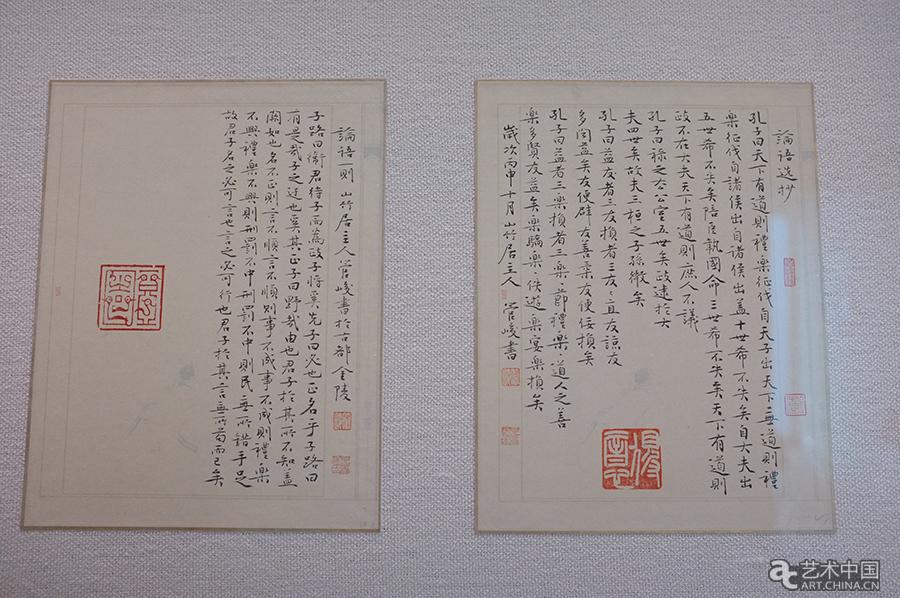 論語選抄
孔子曰天下有道則禮樂征伐自天子出天下無道則禮
樂征伐自諸侯出自諸侯出蓋十世希不失矣自大夫出
五世希不失矣陪臣執國命三世希不失矣天下有道則
政不在大夫天下有道則庶人不議
孔子曰祿之去公室五世矣政逮於大
夫四世矣故夫三桓之子孫微矣
孔子曰益友者三友損者三友〻直友諒友
多聞益矣友便辟友善柔友便佞損矣
孔子曰益者三樂損者三樂〻節禮樂〻道人之善
樂多賢友益矣樂驕樂〻佚遊樂宴樂損矣
歲次丙申十月山竹居主人管峻書
論語一則 山竹居主人管峻書於古都金陵
子路曰衛君待子而為政子將奚先子曰必也正名乎子路曰
有是哉子之迂也奚其正子曰野哉由也君子於其所不知蓋
闕如也名不正則言不順言不順則事不成事不成則禮樂
不興禮樂不興則刑罰不中刑罰不中則民無所錯手足
故君子名之必可言也言之必可行也君子於其言無所苟而已矣
艺术中国
ART.CHINA.CN